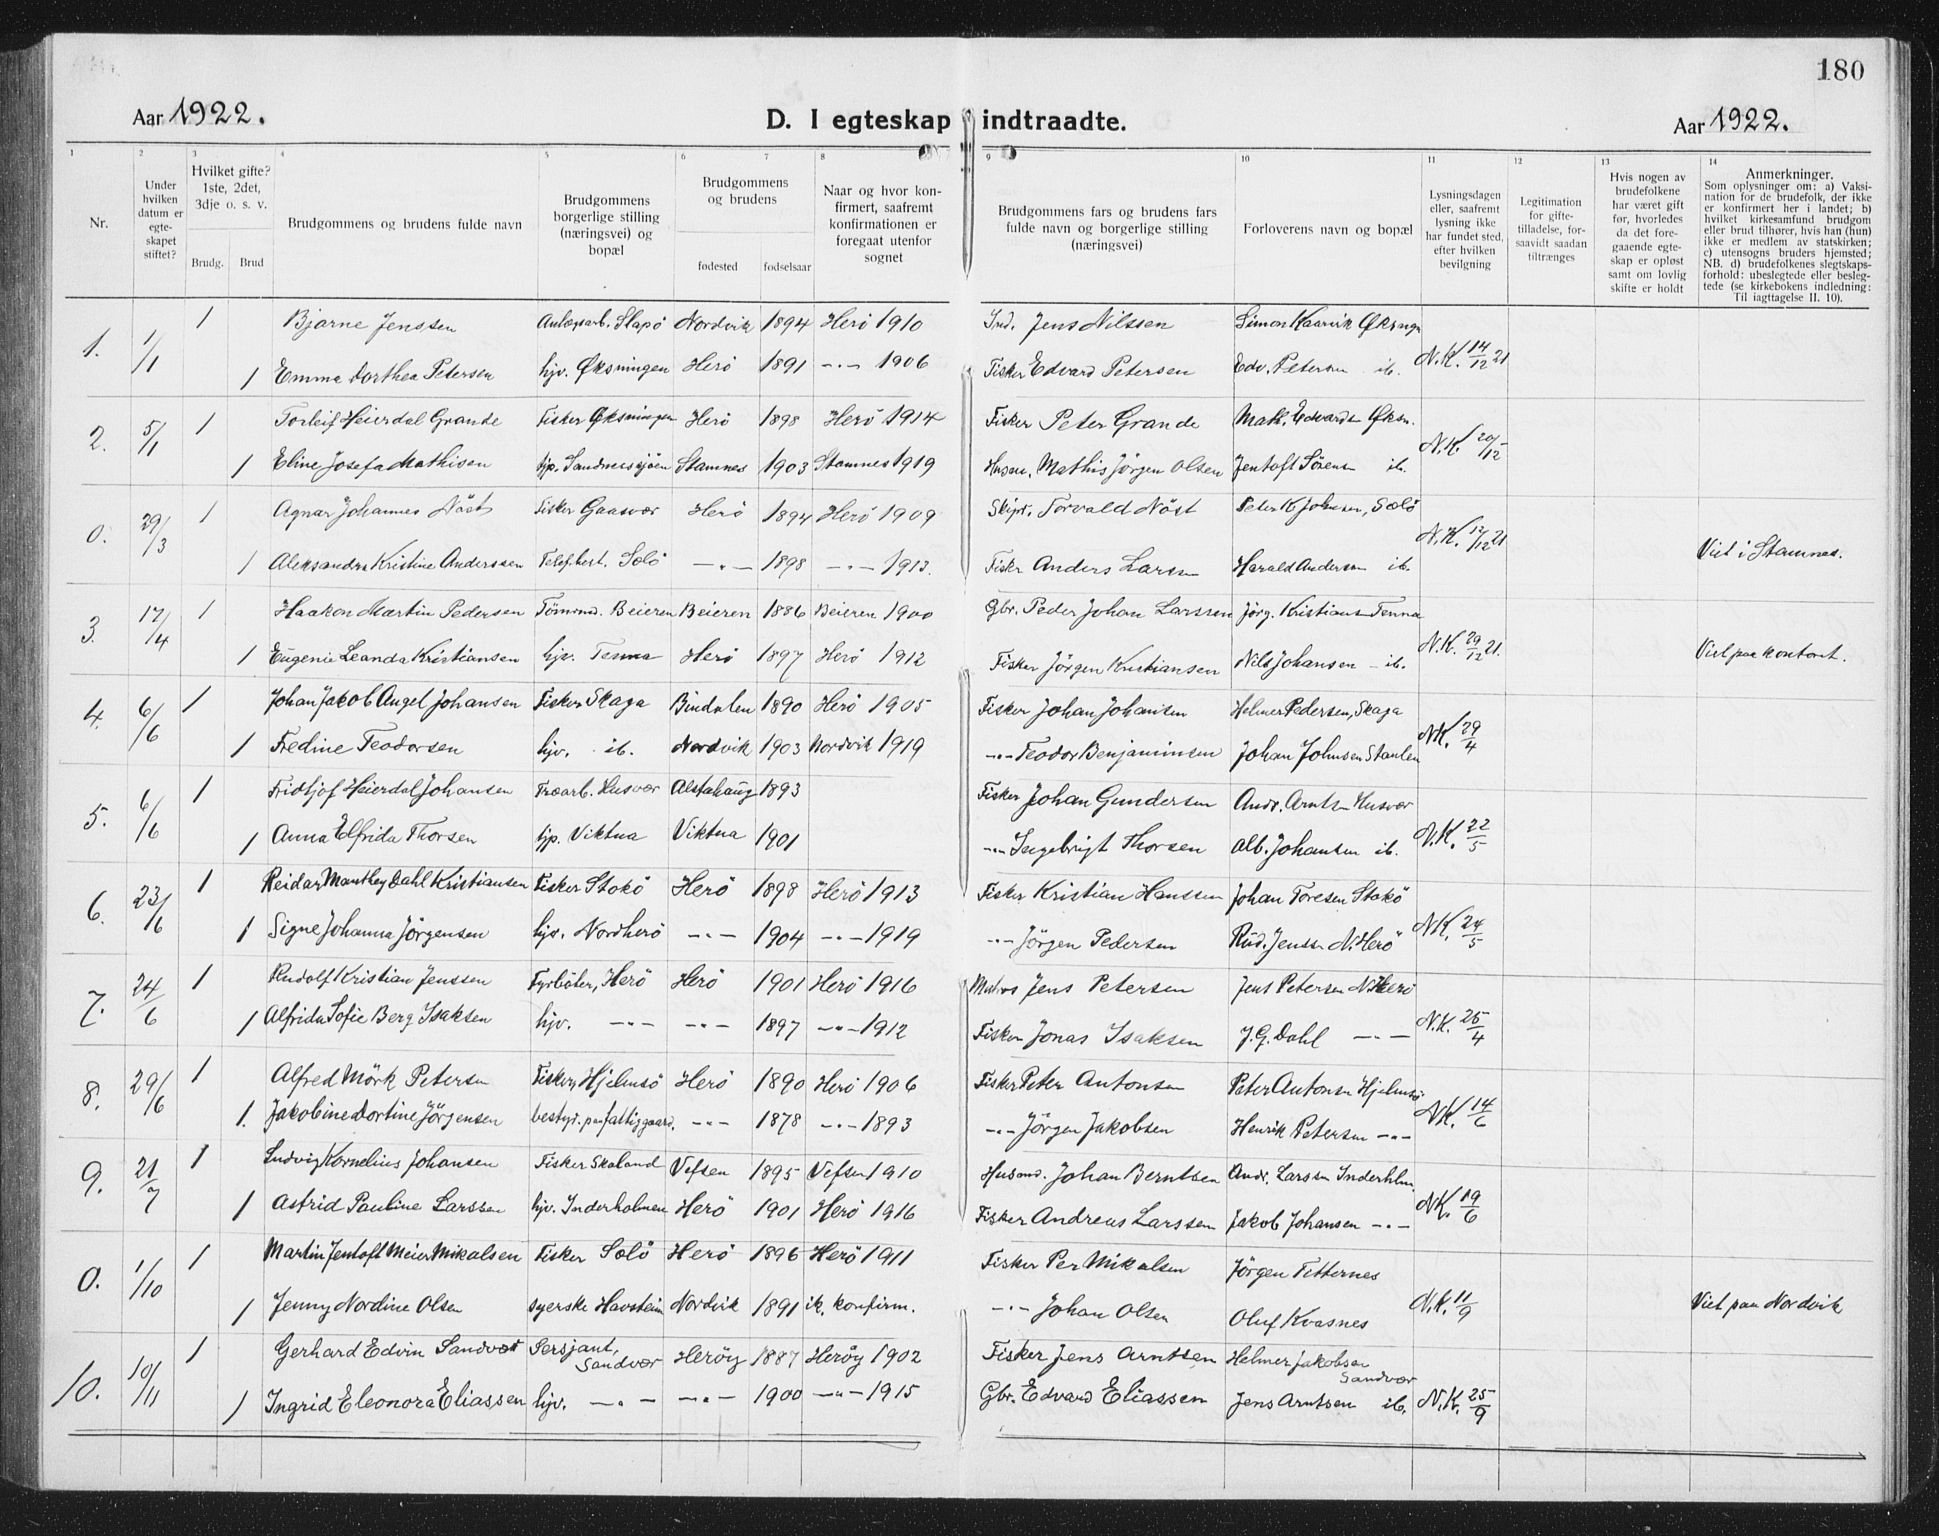 180
Aar 1922. D. I egteskap indtraadte. Aar 1922.
1 2 3 4 5 6 7 8 9 10 11 12 13 14
Nr.
Under hvilken datum er egte-skapet stiftet?
Hvilket gifte? 1ste, 2det, 3dje o. s. v.
Brudg. Brud
Brudgommens og brudens fulde navn
Brudgommens borgerlige stilling (næringsvei) og bopæl
Brudgommens og brudens
fødested fødselsaar
Naar og hvor kon-firmert, saafremt konfirmationen er foregaat utenfor sognet
Brudgommens fars og brudens fars fulde navn og borgerlige stilling (næringsvei)
Forloverens navn og bopæl
Lysningsdagen eller, saafremt lysning ikke har fundet sted, efter hvilken bevilgning
Legitimation for gifte-tilladelse, for-saavidt saadan tiltrænges
Hvis nogen av brudefolkene har været gift før, hvorledes da det fore-gaaende egte-skap er opløst samt om lovlig skifte er holdt
Anmerkninger.
Som oplysninger om: a) Vaksi-nation for de brudefolk, der ikke er konfirmert her i landet; b) hvilket kirkesamfund brudgom eller brud tilhører, hvis han (hun) ikke er medlem av statskirken; c) utensogns bruders hjemsted; NB. d) brudefolkenes slegtskaps-forhold: ubeslegtede eller besleg-tede (se kirkebokens indledning: Til iagttagelse II. 10).
1. 1/1 1 Bjarne Jenssen Anlægsarb. Slapö Nordvik 1894 Herö 1910 Ind. Jens Nilssen Simon Kaarvik
1 Emma Dorthea Petersen hjv. Øksningen Herö 1891 -"- 1906 Fisker Edvard Petersen Edv. Petersen ib. N.K. 14/12 21
2. 5/1 1 Torleif Heierdal Grande Fisker Øksningen Herö 1898 Herö 1914 Fisker Peter Grande Math. Edvards Øksn.
1 Eline Josefa Mathisen hjv. Sandnessjøen Stamnes 1903 Stamnes 1919 Husm. Mathis Jörgen Olsen Jentoft Sörens ib. N.K. 20/12
0. 29/3 1 Agnar Johannes Nöst Fisker Gaasvær Herö 1894 Herö 1909 Skipr. Torvald Nöst Peter K Johnsen, Sölö
1 Aleksandra Kristine Anderssen Telef.best. Sölö -"- 1898 -"- 1913. Fisker Anders Larsen Harald Andersen ib. N.K. 17/12 21 Viet i Stamnes.
3. 17/4 1 Haakon Martin Pedersen Tömmd. Beieren Beieren 1886 Beieren 1900 Gbr. Peder Johan Larssen Jörg. Kristiansen Tenna
1 Eugenie Leanda Kristiansen hjv. Tenna Herö 1897 Herö 1912 Fisker Jörgen Kristiansen Nils Johansen - ib. N.K. 29/12 21. Viet paa kontoret.
4. 6/6 1 Johan Jakob Angel Johansen Fisker Skaga Bindalen 1890 Herö 1905 Fisker Johan Johansen Helmer Pedersen, Skaga
1 Fredine Teodorsen hjv. ib. Nordvik 1903 Nordvik 1919 -"- Teodor Benjaminsen Johan Johnsen N.K. 29/4
5. 6/6 1 Fridtjof Heierdal Johansen Træarb. Husvær Alstahaug 1893 Fisker Johan Gundersen Andr. Arntsen Husvær
1 Anna Elfrida Thorsen hjv. Viktna Viktna 1901 -"- Ingebrigt Thorsen Alb. Johansen ib. N.K. 22/5
6. 23/6 1 Reidar Manthey Dahl Kristiansen Fisker Stokö Herö 1898 Herö 1913 Fisker Kristian Hanssen Johan Toresen Stokö
1 Signe Johanna Jörgensen hjv. Nordherö -"- 1904 -"- 1919 -"- Jörgen Pedersen Rud. Jenssen N.Herö N.K. 24/5
7. 24/6 1 Rudolf Kristian Jenssen Fyrböter, Herö Herö 1901 Herö 1916 Matros Jens Petersen Jens Petersen N.Herö
1 Alfrida Sofie Berg Isaksen hjv. -"- -"- 1897 -"- 1912 Fisker Jonas Isaksen J.G. Dahl -"- N.K. 25/4
8. 29/6 1 Alfred Mörk Petersen Fisker, Hjelmsö Herö 1890 Herö 1906 Fisker Peter Antonsen Peter Antonsen Hjelmsö
1. Jakobine Dortine Jörgensen bestyr. paa fattiggaard. -"- 1878 -"- 1893 -"- Jörgen Jakobsen Henrik Petersen -"- N.K. 14/6
9. 21/7 1 Ludvig Kornelius Johansen Fisker Skaland Vefsen 1895 Vefsen 1910 Husmd. Johan Berntsen Andr. Larssen Inderhlm.
1 Astrid Pauline Larssen hjv. Inderholmen Herö 1901 Herö 1916 Fisker Andreas Larssen Jakob Johansen -"- N.K. 19/6
0. 1/10 1 Martin Jentoft Meier Mikalsen Fisker Sölö Herö 1896 Herö 1911 Fisker Per Mikalsen Jörgen Tetternes
1 Jenny Nordine Olsen syerske Havstein Nordvik 1891 ik. konfirm. -"- Johan Olsen Oluf Kvasnes N.K. 11/9 Viet paa Nordvik
10. 10/11 1 Gerhard Edvin Sandvær Sersjant, Sandvær Herøy 1887 Herøy 1902 Fisker Jens Arntsen Helmer Jakobsen Sandvær
1 Ingrid Eleonora Eliassen hjv. -"- -"- 1900 -"- 1915 Gbr. Edvard Eliassen Jens Arntsen ib. N.K. 25/9